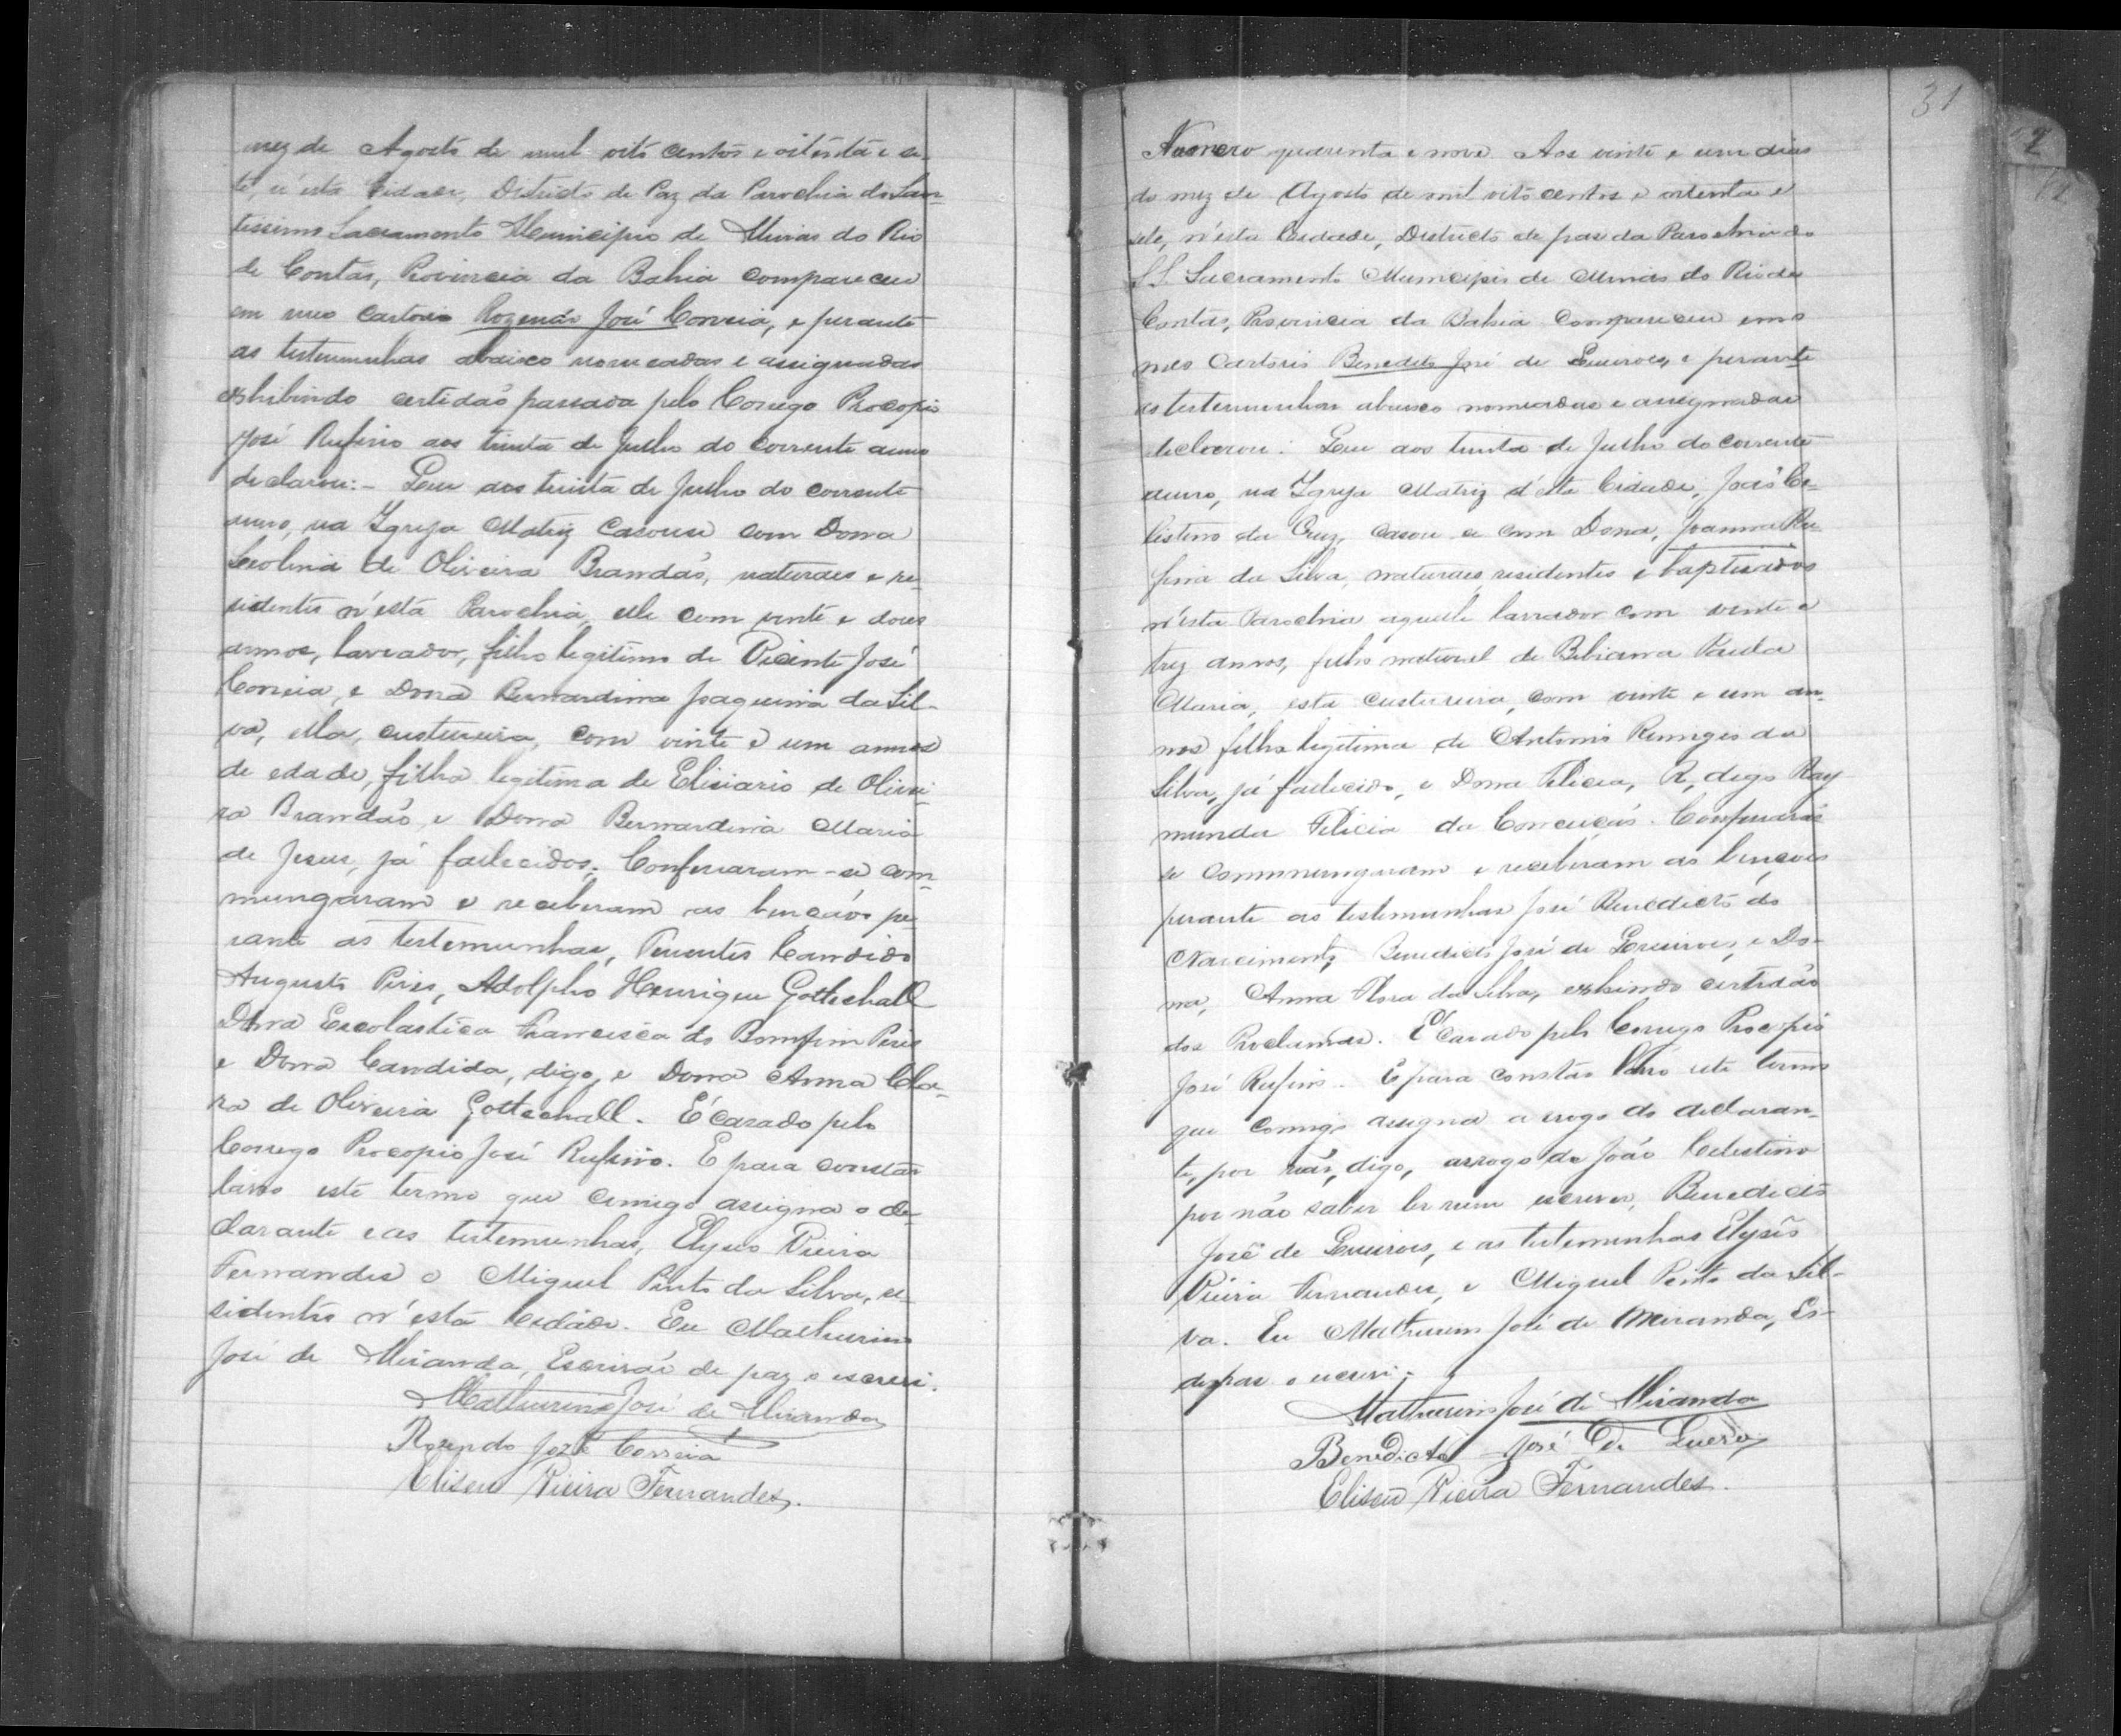 mez de Agosto de mil oito centos e oitenta e se-
te, n'esta Cidade, Districto de Paz da Parochia do San-
tissimo Sacramento Municipio de Minas do Rio
de Contas, Provincia da Bahia compareceu
em meu Cartorio Rozendo José Correia, e perante
as testemunhas abaixo nomeadas e assignadas
exhibindo certidão passada pelo Conego Procopio
José Rufino aos trinta de Julho do corrente anno
declarou:- Que aos trinta de Julho do corrente
anno, na Igreja Matriz casouse com Dona
de Oliveira Brandão, naturaes e re-
sidentes n'esta Parochia, elle com vinte e dous
annos, lavrador, filho legitimo de Vicente José
Correia, e Dona Bernardina Joaquina da Sil-
va, ella, custureira, com vinte e um annos
de edade, filha legitima de Elisiario de Olivei-
ra Brandão, e Dona Bernardina Maria
de Jesus, já fallecidos. Confessaram-se com-
mungaram e receberam as bençãos pe-
rante as testemunhas, Tenentes Candido
Augusto Pires, Adolpho Henrique Gottschall
Dona Escolastica Francisca do Bomfim Pires
e Dona Candida, digo, e Dona Anna Cla-
ra de Oliveira Gottschall. É casado pelo
Conego Procopio José Rufino. E para constar
lavro este termo que comigo assigna o de-
clarante e as testemunhas, Elyseo Vieira
Fernandes e Miguel Pinto da Silva, re-
sidentes n'esta Cidade. Eu Mathurino
José de Miranda, Escrivão de paz o escrevi.
Mathurino José de Miranda
Rozendo José Correia
Eliseu Vieira Fernandes.
31
2
12
Numero quarenta e nove. Aos vinte e um dias
do mez de Agosto de mil oito centos e oitenta e
sete, n'esta Cidade, Districto de paz da Parochia do
SS. Sacramento Municipio de Minas do Rio de
Contas, Provincia da Bahia compareceu em o
meu Cartorio Benedicto José de Queiroes, e perante
as testemunhas abaixo nomeadas e assignadas
declarou: Que aos trinta de Julho do corrente
anno, na Igreja Matriz d'esta Cidade, João Ce-
listino da Cruz, casou se com Dona, Joanna Ru-
fina da Silva, naturaes, residentes e baptisados
n'esta Parochia aquelle lavrador com vinte e
trez annos, filho natural de Bibiana Paula
Maria, esta custureira, com vinte e um an-
nos filha legitima de Antonio Remigio da
Silva, já fallecido, e Dona Felicia, R, digo Ray-
munda Felicia da Conceição. Confessarão
se commungaram e receberam as bençoes
perante as testemunhas José Benedicto do
Nascimento, Benedicto José de Queiroes, e Do-
na, Anna Flora da Silva, exhindo certidão
dos Proclamas. É casado pelo Conego Procopio
José Rufino. E para constar lavro este termo
que comigo assigna a rogo do declaran-
te, por não, digo, arrogo de João Celestino
por não saber ler nem escrever, Benedicto
José de Queiroes, e as testemunhas Elysêo
Vieira Fernandes, e Miguel Pinto da Sil-
va. Eu Mathurino José de Miranda, Es-
de paz o escrevi.
Mathurino José de Miranda
Benedicto José De
Eliseu Vieira Fernandes.